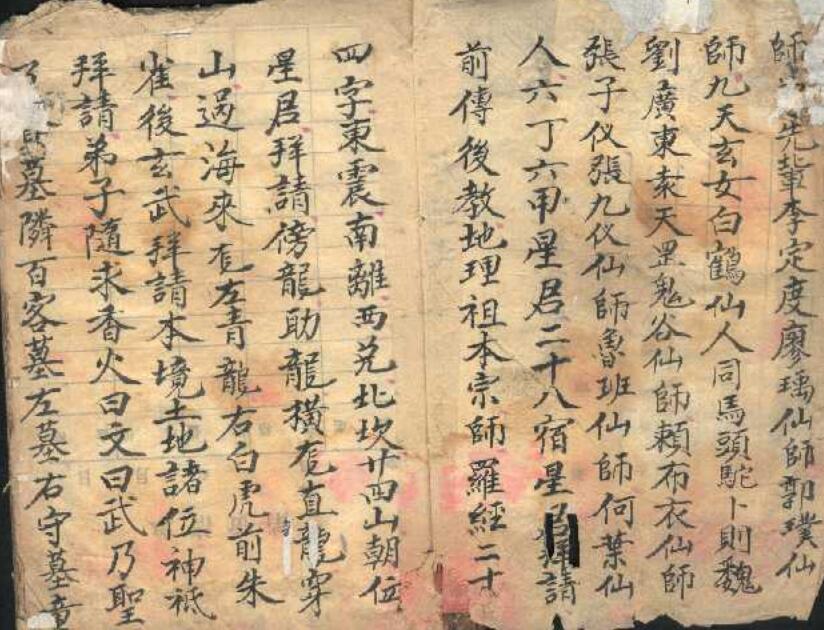 師 先輩李定度廖瑀仙師郭璞仙
師九天玄女白鶴仙人同馬頭駝卜則魏
劉廣東袁天罡鬼谷仙師賴布衣仙師
張子仪張九仪仙師魯班仙師何葉仙
人六丁六甲星君二十八宿星君拜請
前傳後教地理祖本宗師羅經二十
四字東震南離西兑北坎廿四山朝位
星君拜請傍龍助龍橫龍直龍穿
山過海來龍左青龍右白虎前朱
雀後玄武拜請本境土地諸位神祗
拜請弟子隨未香火曰文曰武乃聖
墓隣百客墓左墓右守墓童